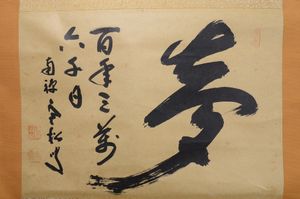 夢
百年三萬
六千日
南禅